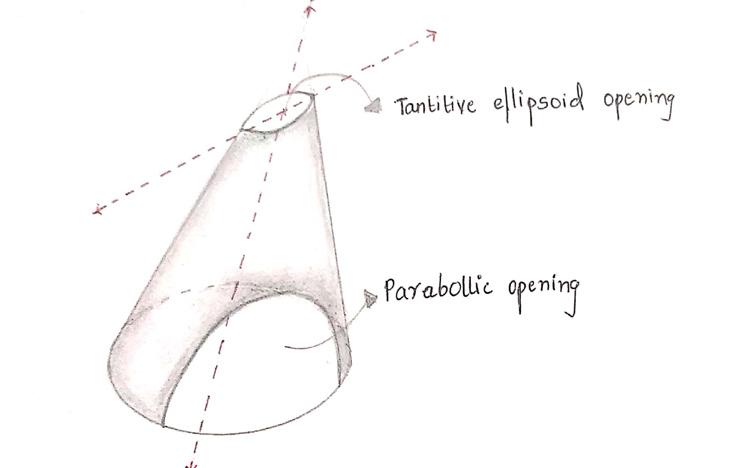 Tantitive ellipsoid opening
Parabollic opening